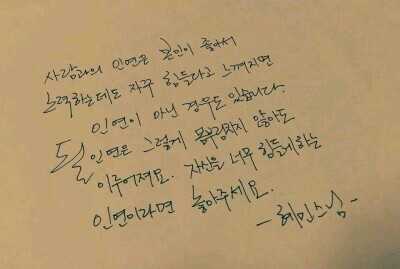 사람과의 인연은 본인이 좋아서
노력하는데도 자꾸 힘들다고 느껴지면
인연이 아닌 경우도 있습니다.
될 인연은 그렇게 몸부림치지 않아도
이루어져요. 자신을 너무 힘들게하는
인연이라면 놓아주세요.
- 혜민스님 -